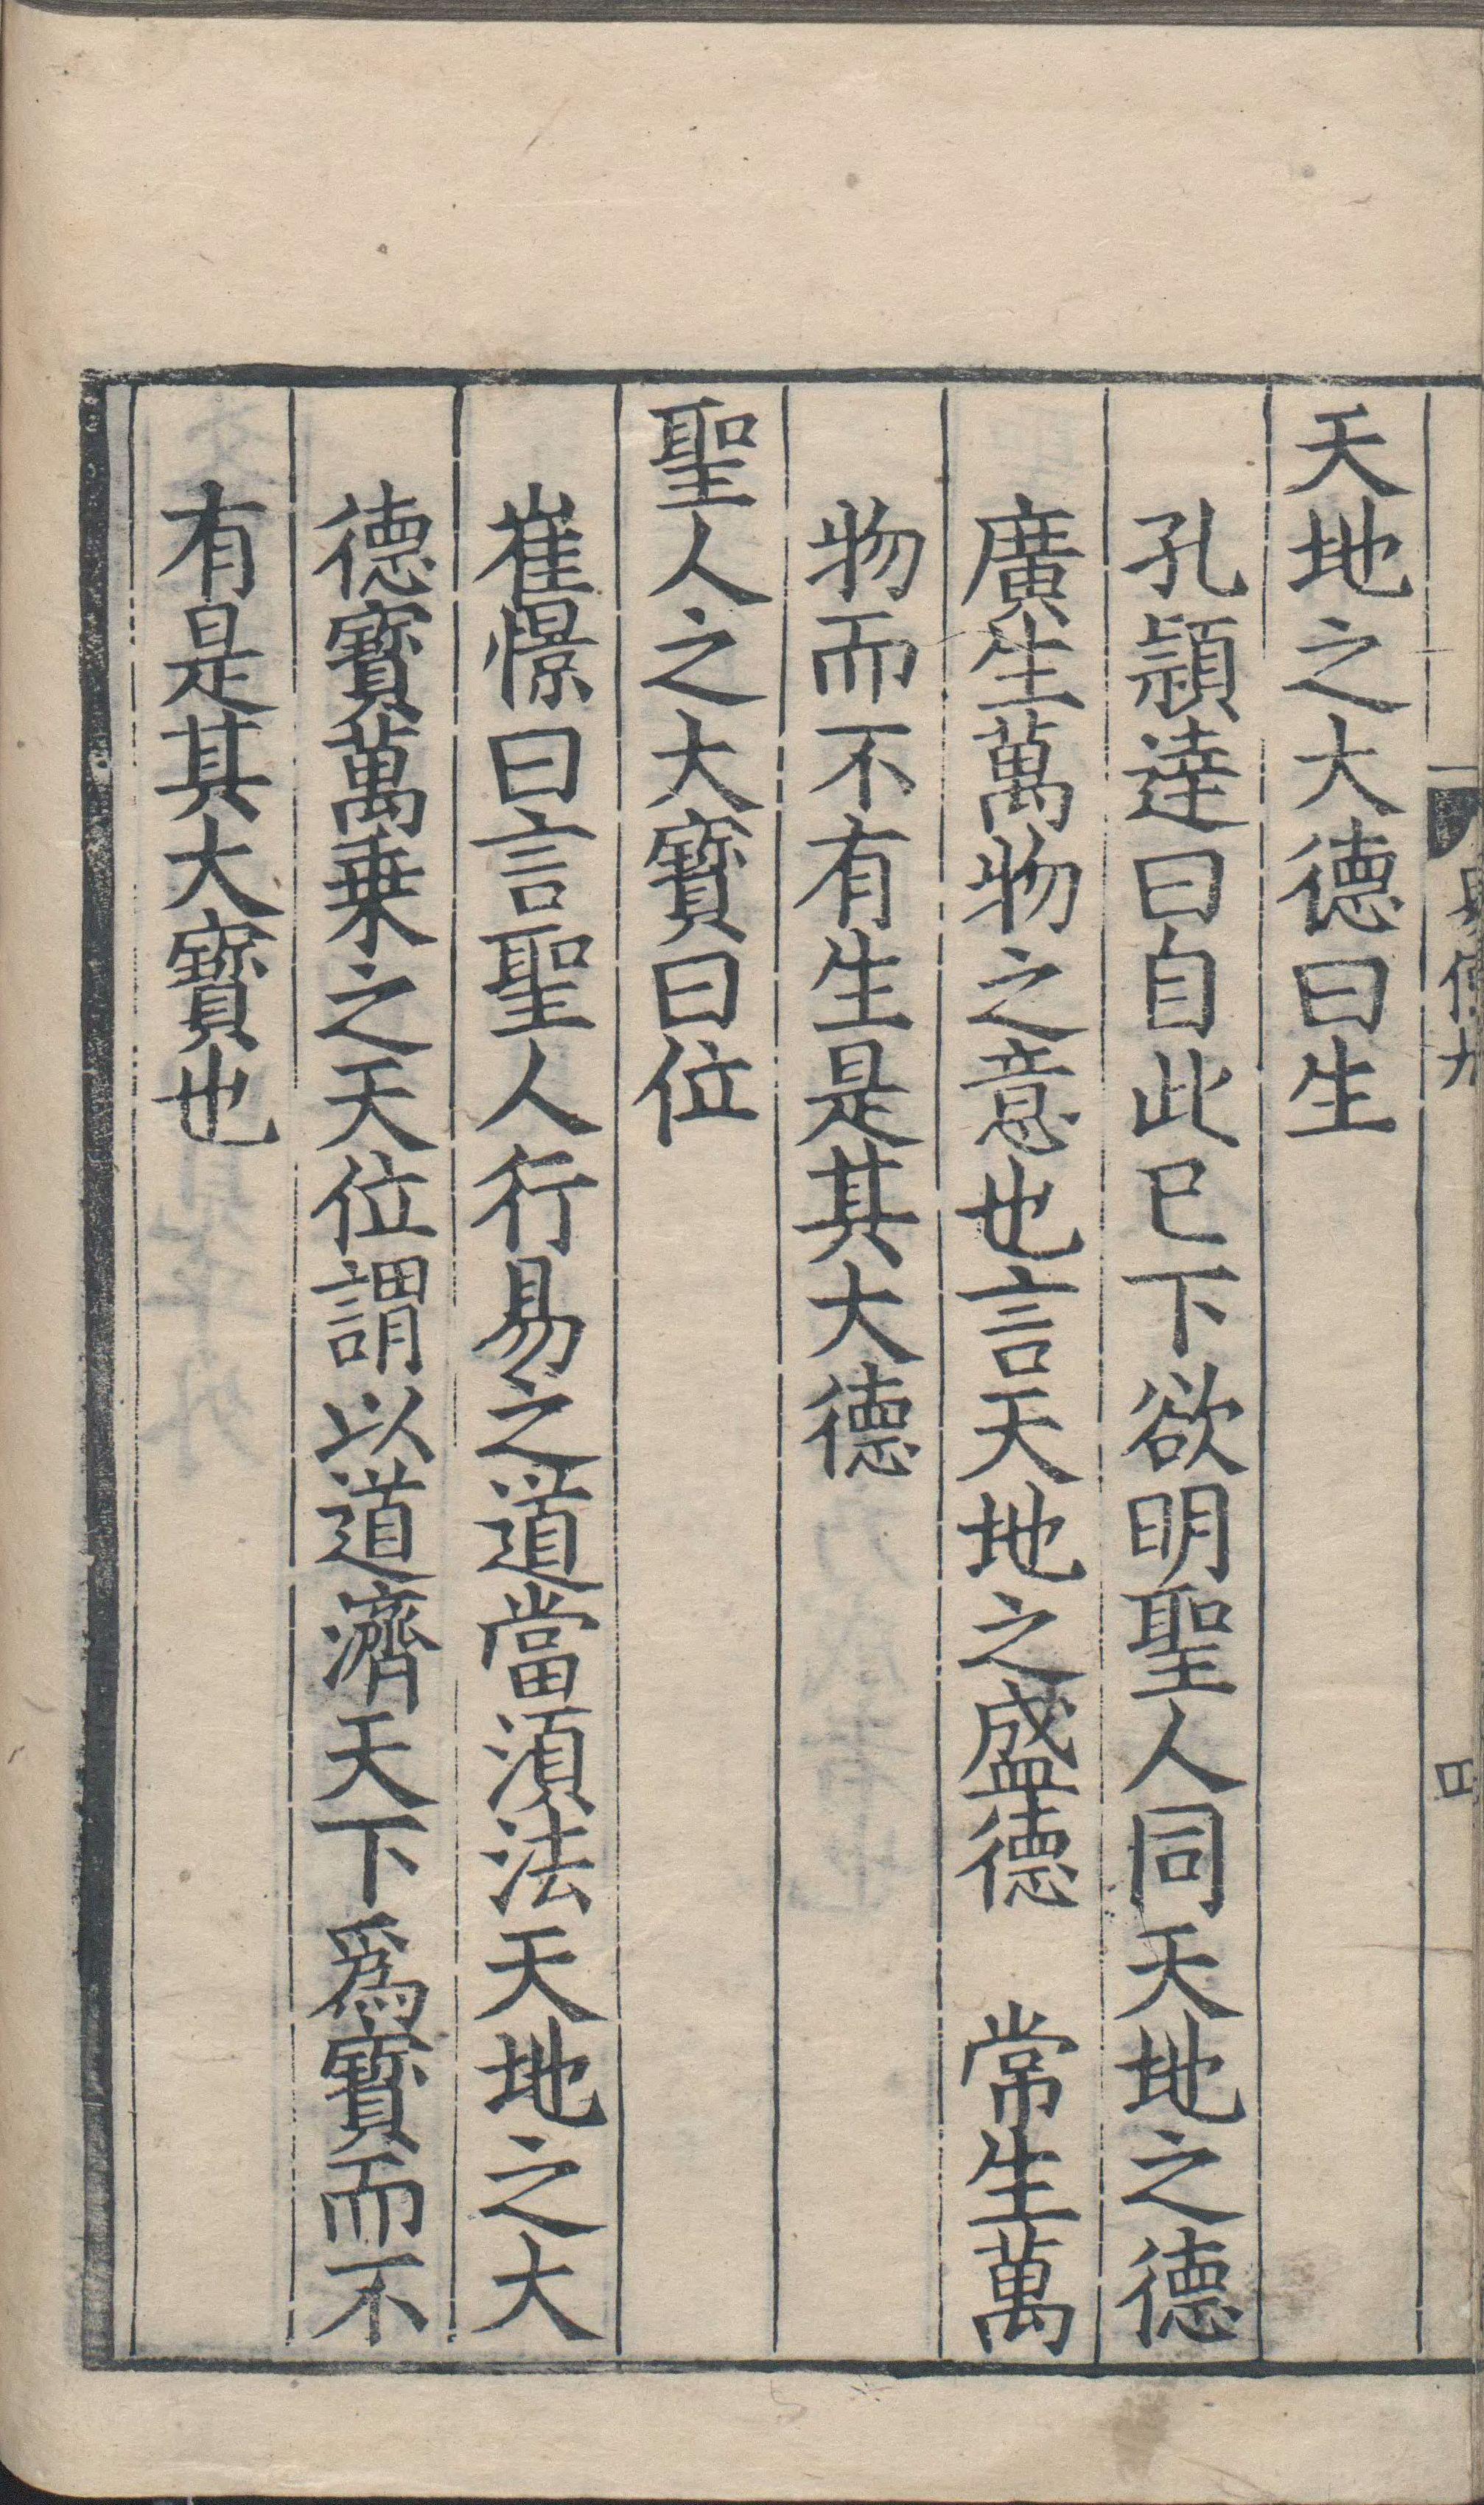 天地之大德曰生
孔頴達曰自此已下欲明聖人同天地之德
廣生萬物之意也言天地之盛德　常生萬
物而不有生是其大德
聖人之大寶曰位
崔憬曰言聖人行易之道當湏法天地之大
德寶萬乗之天位謂以道濟天下爲寶而不
有是其大寶也